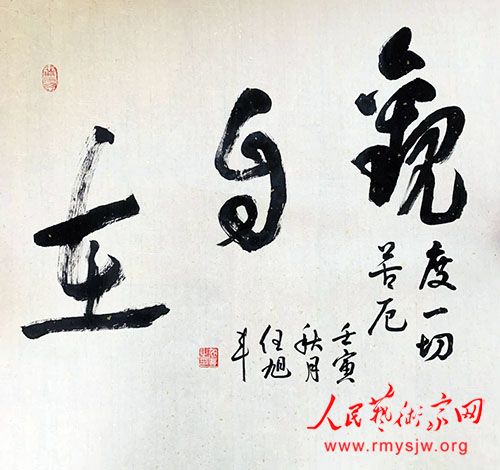 觀自在
度一切
苦厄
壬寅
秋月
任旭
人民藝術家网
www.rmysjw.org